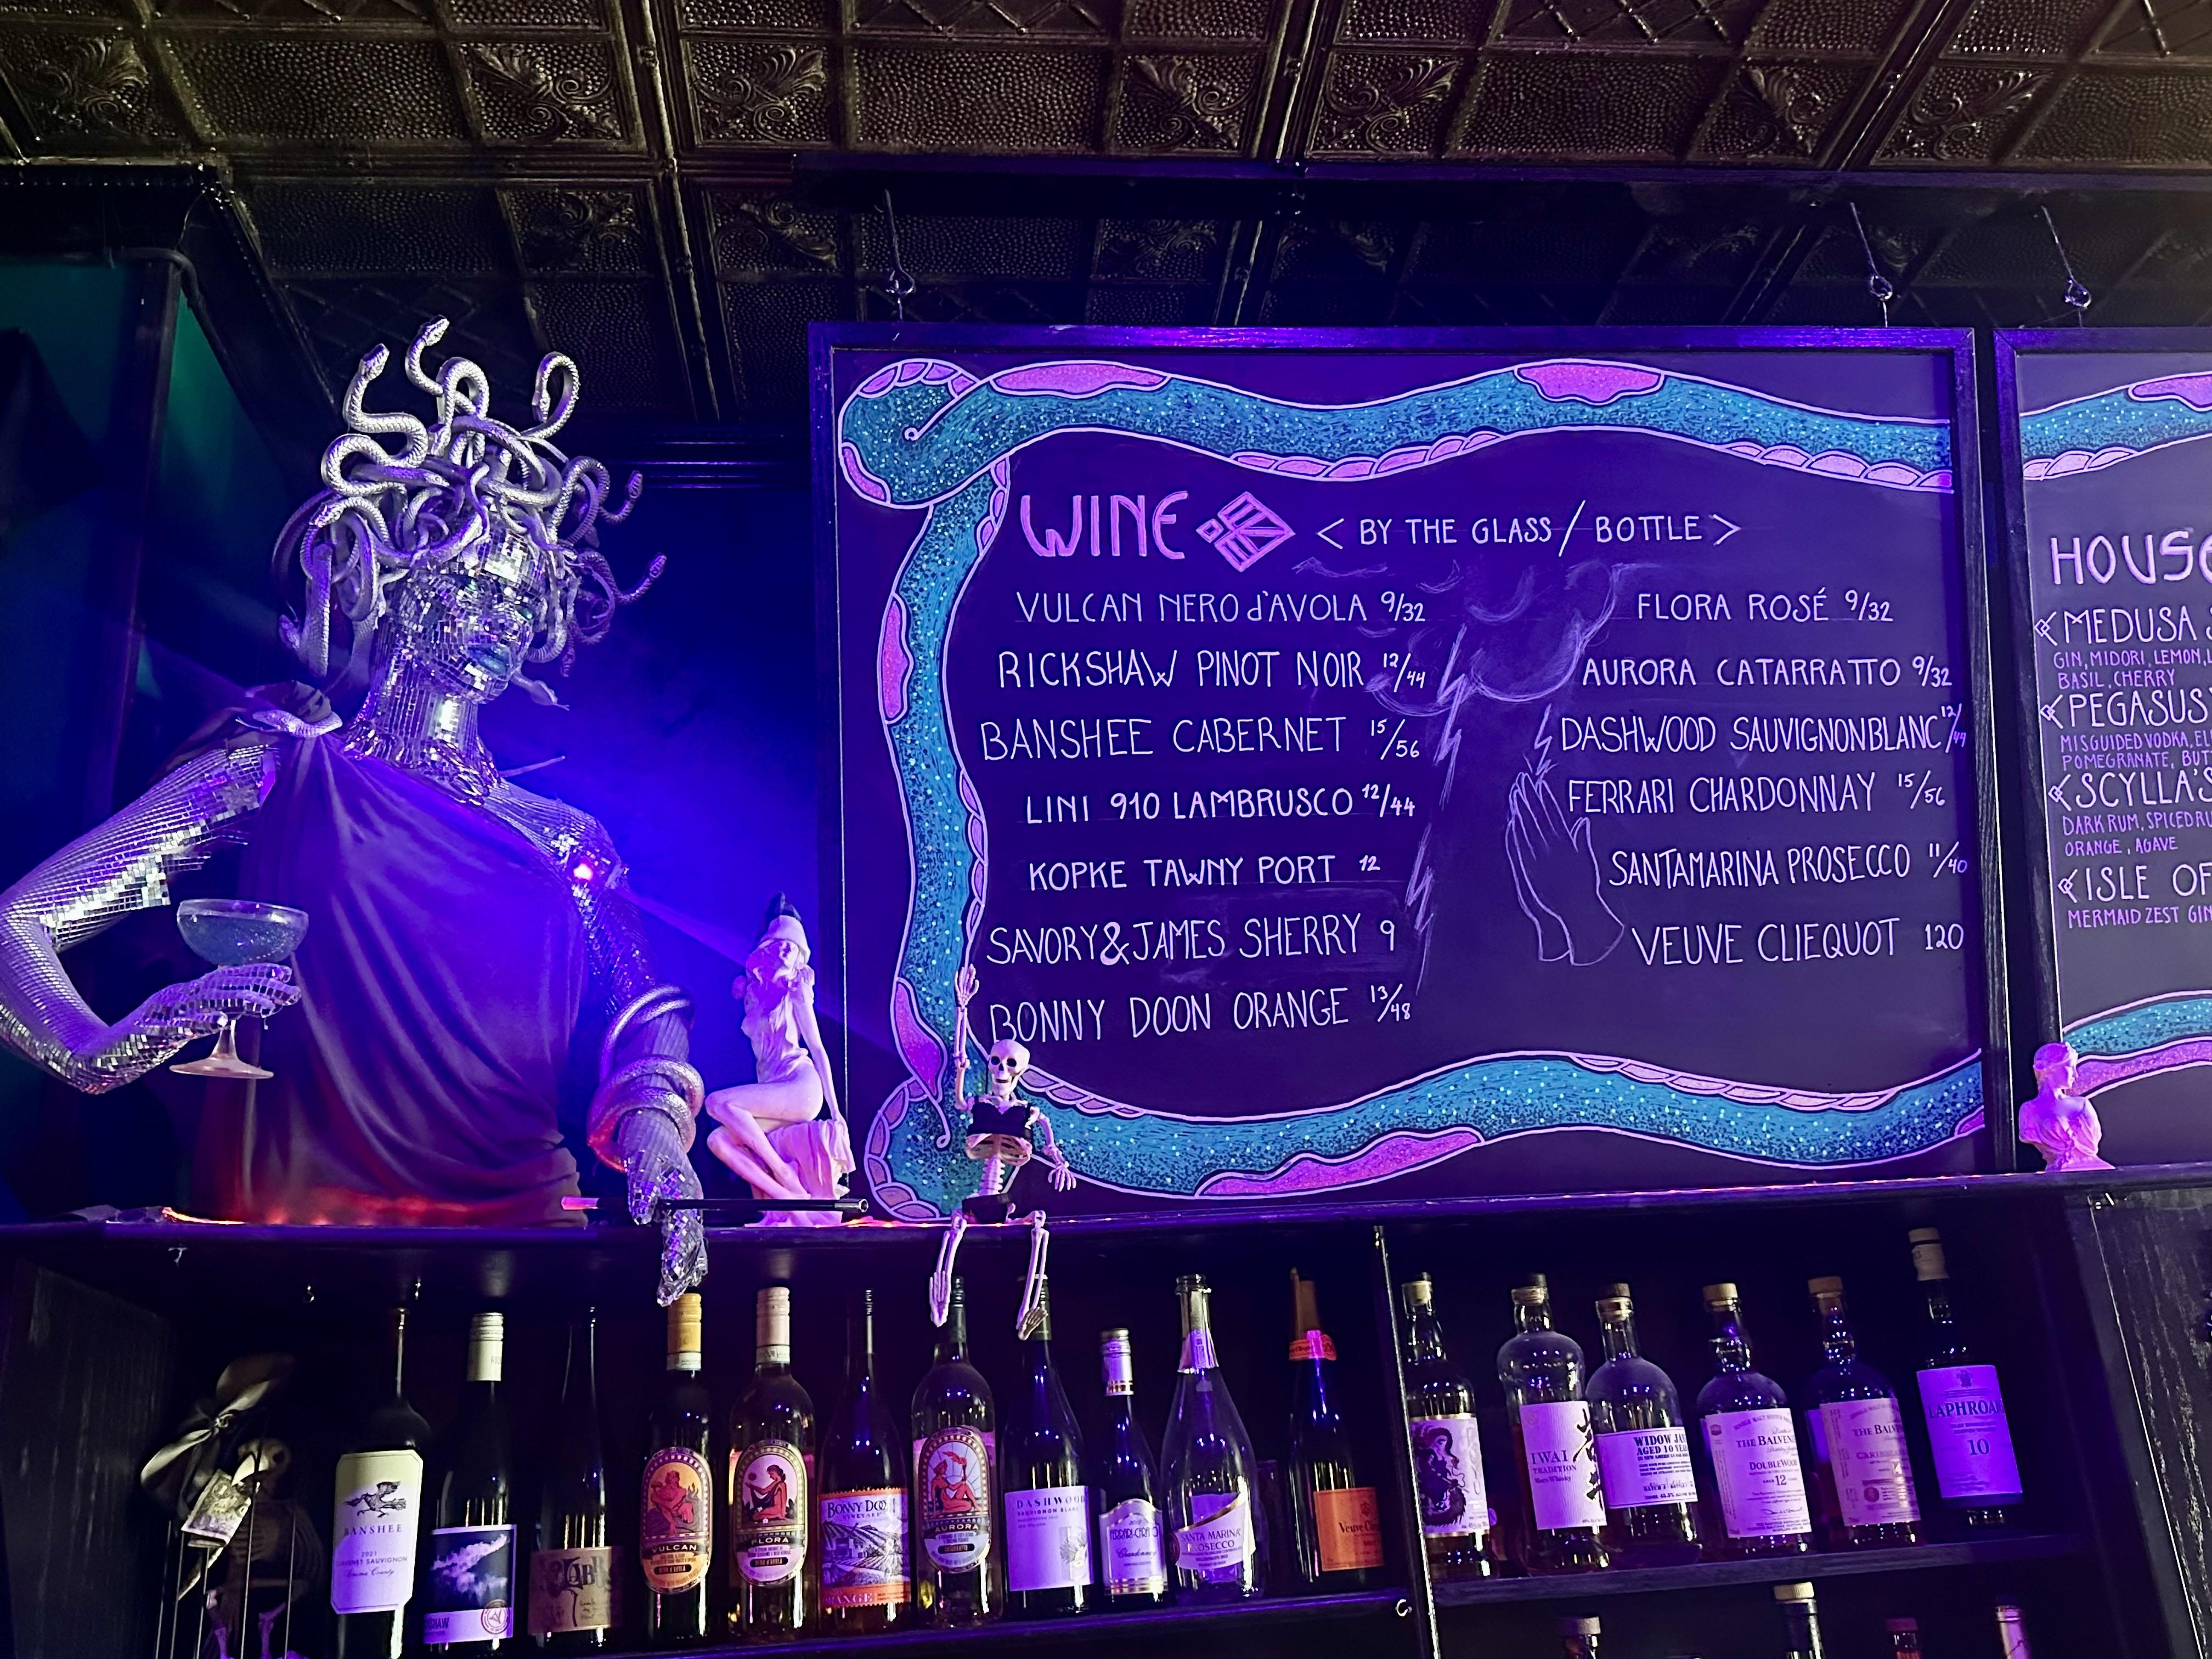 WINE < BY THE GLASS / BOTTLE >
VULCAN NERO d'AVOLA 9/32
RICKSHAW PINOT NOIR 12/44
BANSHEE CABERNET 15/56
LINI 910 LAMBRUSCO 12/44
KOPKE TAWNY PORT 12
SAVORY & JAMES SHERRY 9
BONNY DOON ORANGE 13/48
FLORA ROSÉ 9/32
AURORA CATARRATTO 9/32
DASHWOOD SAUVIGNON BLANC 12/44
FERRARI CHARDONNAY 15/56
SANTAMARINA PROSECCO 11/40
VEUVE CLIEQUOT 120
HOUSE
MEDUSA
GIN, MIDORI, LEMON,
BASIL, CHERRY
PEGASUS
MISGUIDED VODKA,
POMEGRANATE,
SCYLLA'S
DARK RUM, SPICED RU
ORANGE, AGAVE
ISLE OF
MERMAID ZEST GIN
BANSHEE
2021
CABERNET SAUVIGNON
Sonoma County
VULCAN
FLORA
BONNY DOON
VINEYARD
ORANGE
AURORA
DASHWOOD
SAUVIGNON BLANC
FERRARI-CARANO
Chardonnay
SANTA MARINA
PROSECCO
Veuve Cl
IWAI
TRADITION
Mars Whisky
WIDOW JA
AGED 10 YEA
THE BALVEN
DOUBLEWOO
AGED 12
THE BALV
CARIBBEAN
LAPHROAI
10